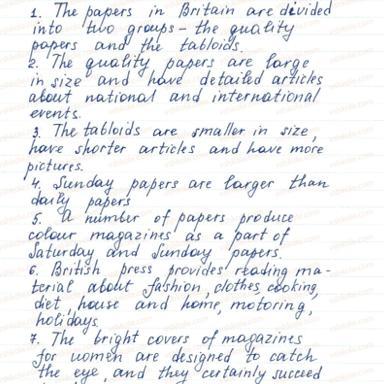 1. The papers in Britain are divided
into two groups – the quality
papers and the tabloids.
2. The quality papers are large
in size and have detailed articles
about national and international
events.
3. The tabloids are smaller in size,
have shorter articles and have more
pictures.
4. Sunday papers are larger than
daily papers
5. A number of papers produce
colour magazines as a part of
Saturday and Sunday papers.
6. British press provides reading ma-
terial about fashion, clothes, cooking,
diet, house and home, motoring,
holidays.
7. The bright covers of magazines
for women are designed to catch
the eye, and they certainly succeed